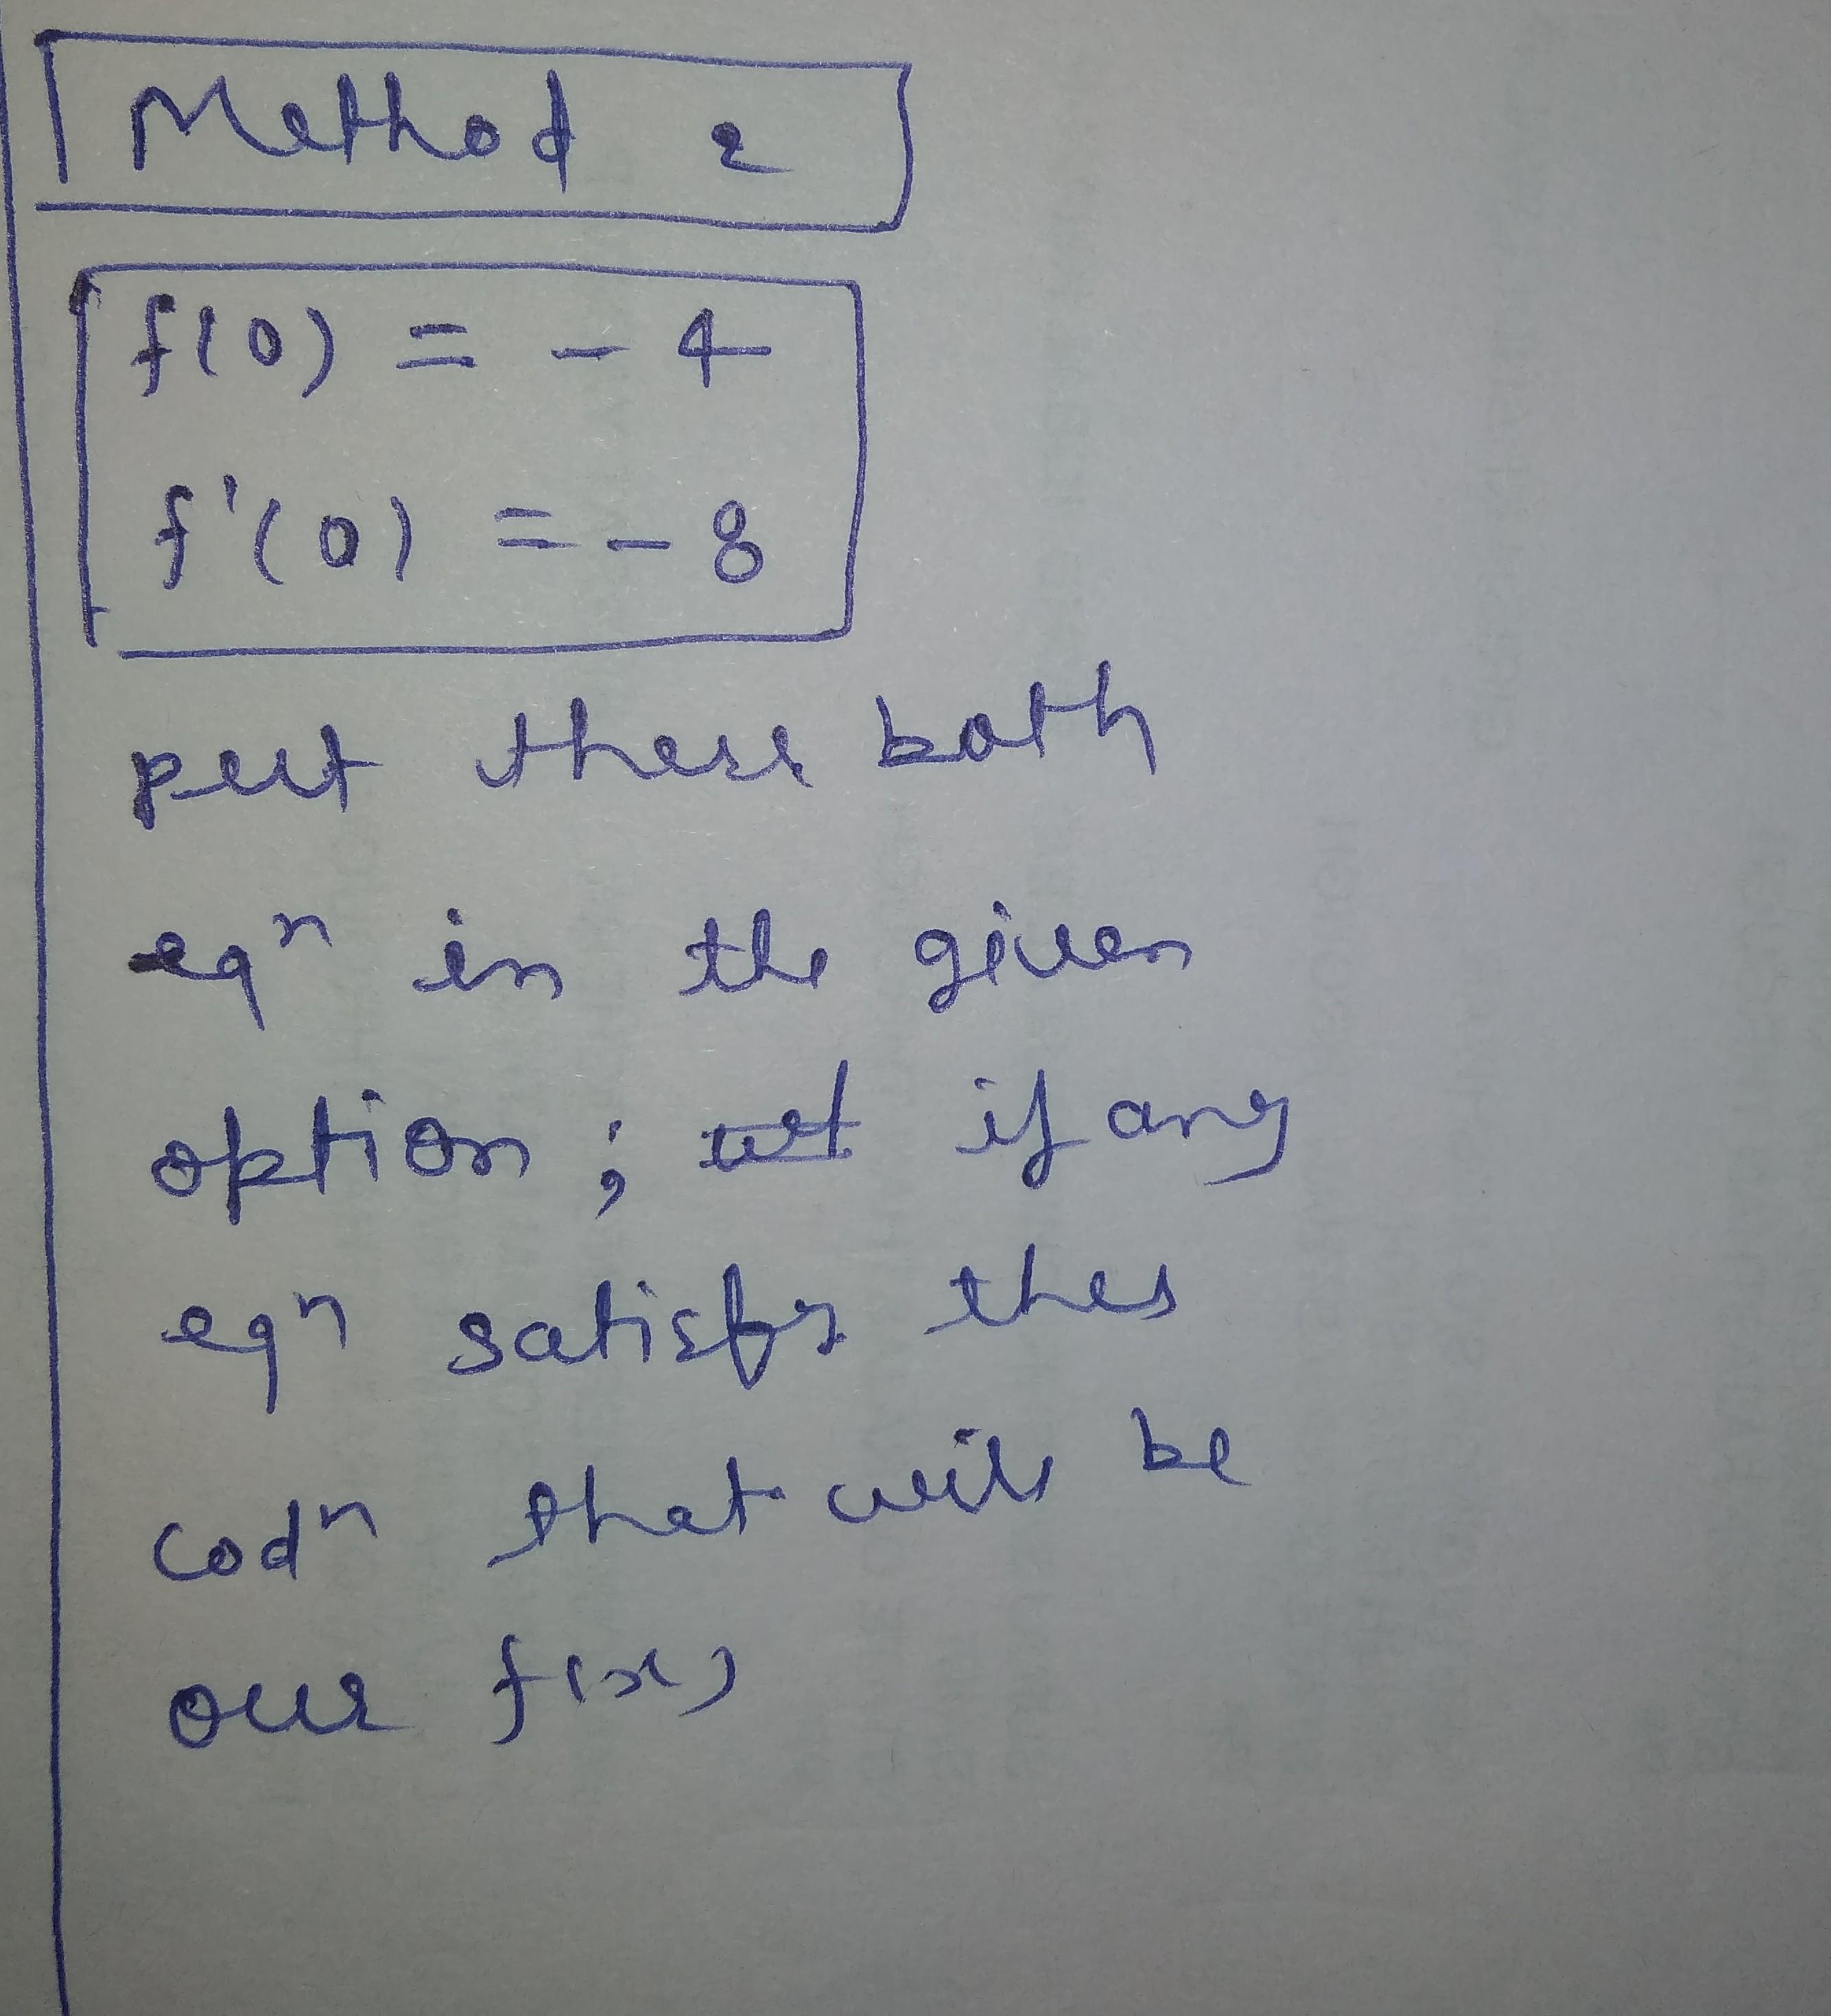 Method 2
f(0) = - 4
f'(0) = - 8
put these both
eqⁿ in the given
option ; if any
eqⁿ satisfy thes
codⁿ that will be
our f(x)